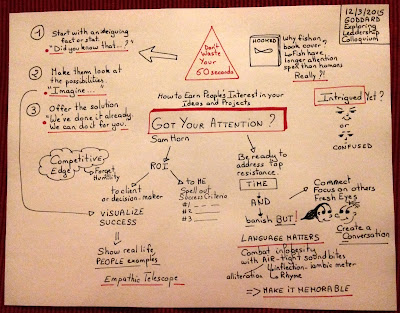 12/3/2015
GODDARD
Exploring
Leadership
Colloquium
1 Start with an intriguing
fact or stat.
"Did you know that...?"
Don't
Waste
Your
60 seconds
HOOKED
Why fish on
book cover?
Fish have
longer attention
span than humans
Really?!
2 Make them look at
the possibilities.
"Imagine...."
3 Offer the solution
"We've done it already.
We can do it for you."
How to Earn People's Interest in your
Ideas and Projects
GOT YOUR ATTENTION?
Sam Horn
Intrigued Yet?
or
or
CONFUSED
Competitive
Edge
Forget
Humility
ROI
to client
or decision-maker
VISUALIZE
SUCCESS
to ME
Spell out
Success Criteria
#1
#2
#3
Show real life,
PEOPLE examples
Empathic Telescope
Be ready to
address top
resistance.
TIME
AND
banish BUT!
Connect
Focus on others
Fresh Eyes
Create a
Conversation
LANGUAGE MATTERS
Combat infobesity
with AIR-tight sound bites
Inflection - iambic meter
alliteration Rhyme
=> MAKE IT MEMORABLE